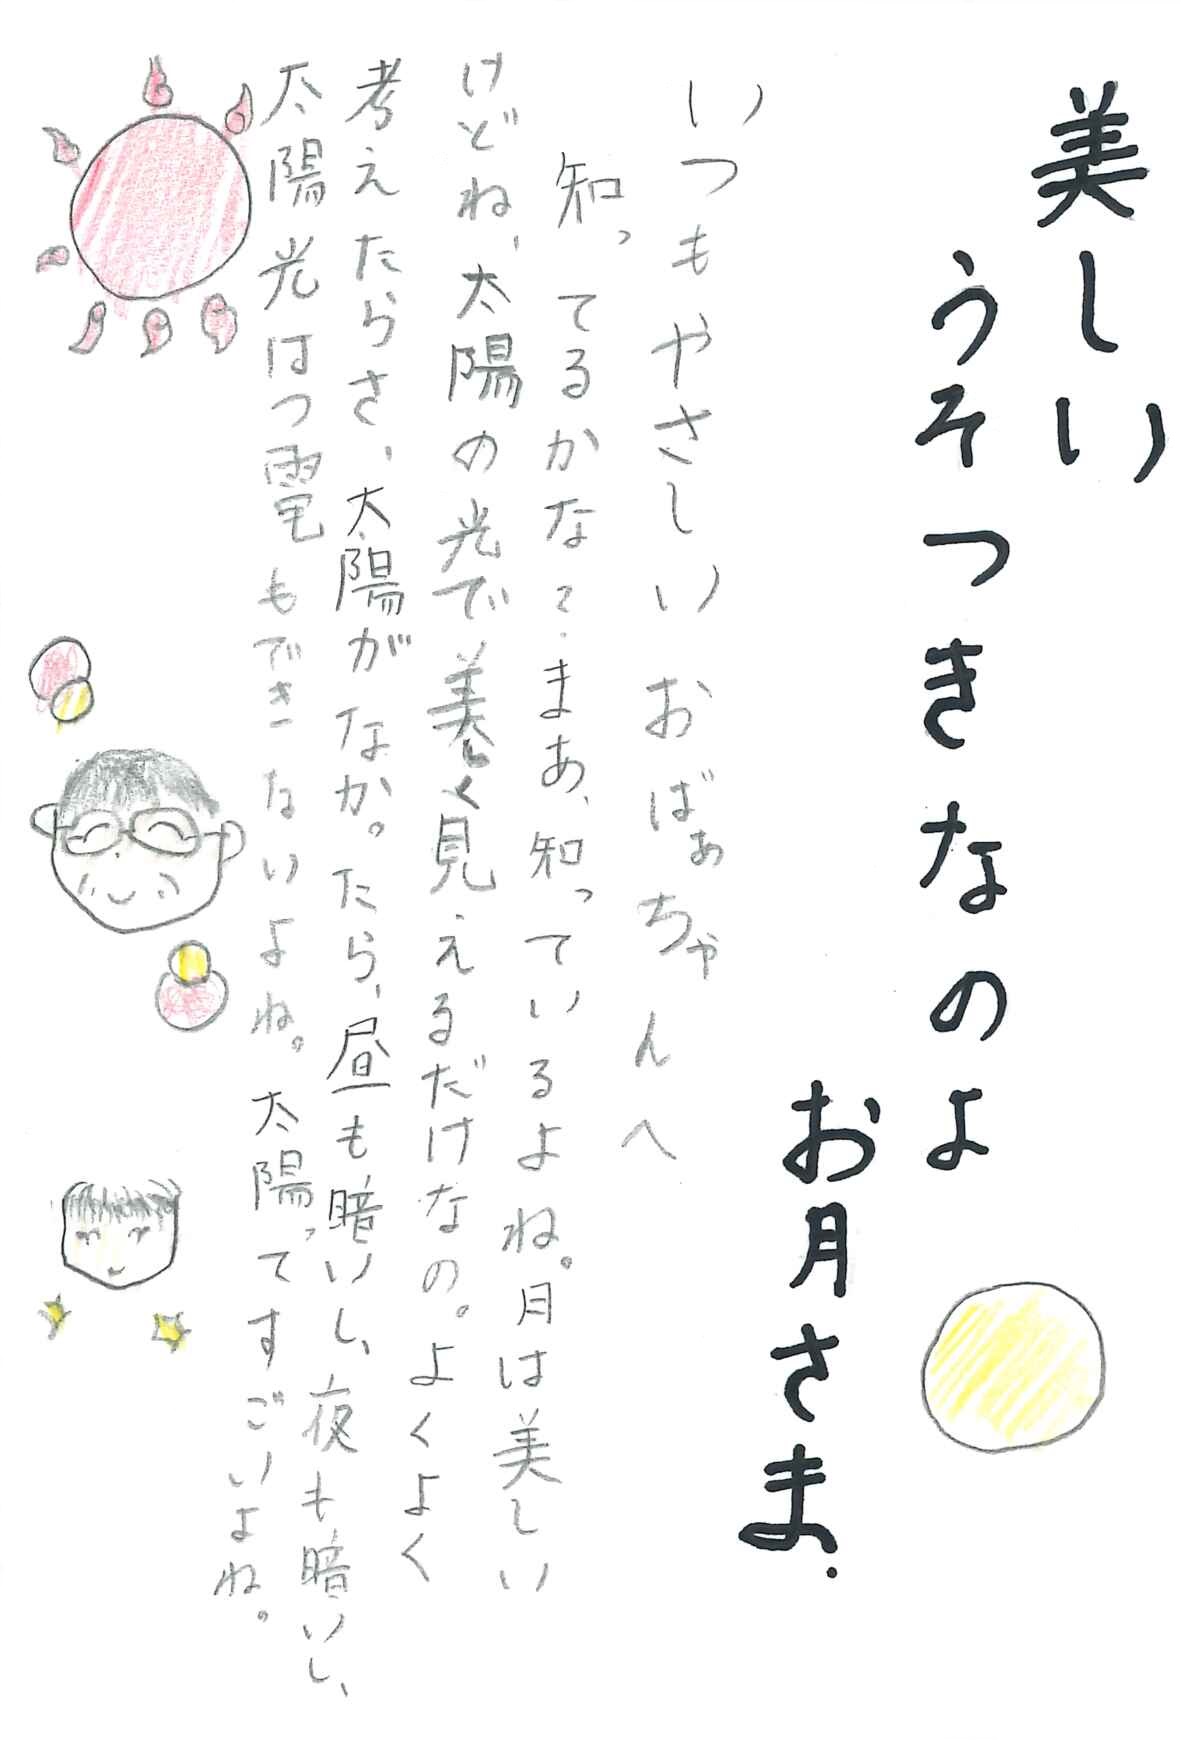 美しい
うそつきなのよ
お月さま.
いつもやさしいおばぁちゃんへ
知ってるかな?まあ、知っているよね。月は美しい
けどね、太陽の光で美しく見えるだけなの。よくよく
考えたらさ、太陽がなかったら、昼も暗いし、夜も暗いし、
太陽光はつ電もできないよね。太陽ってすごいよね。